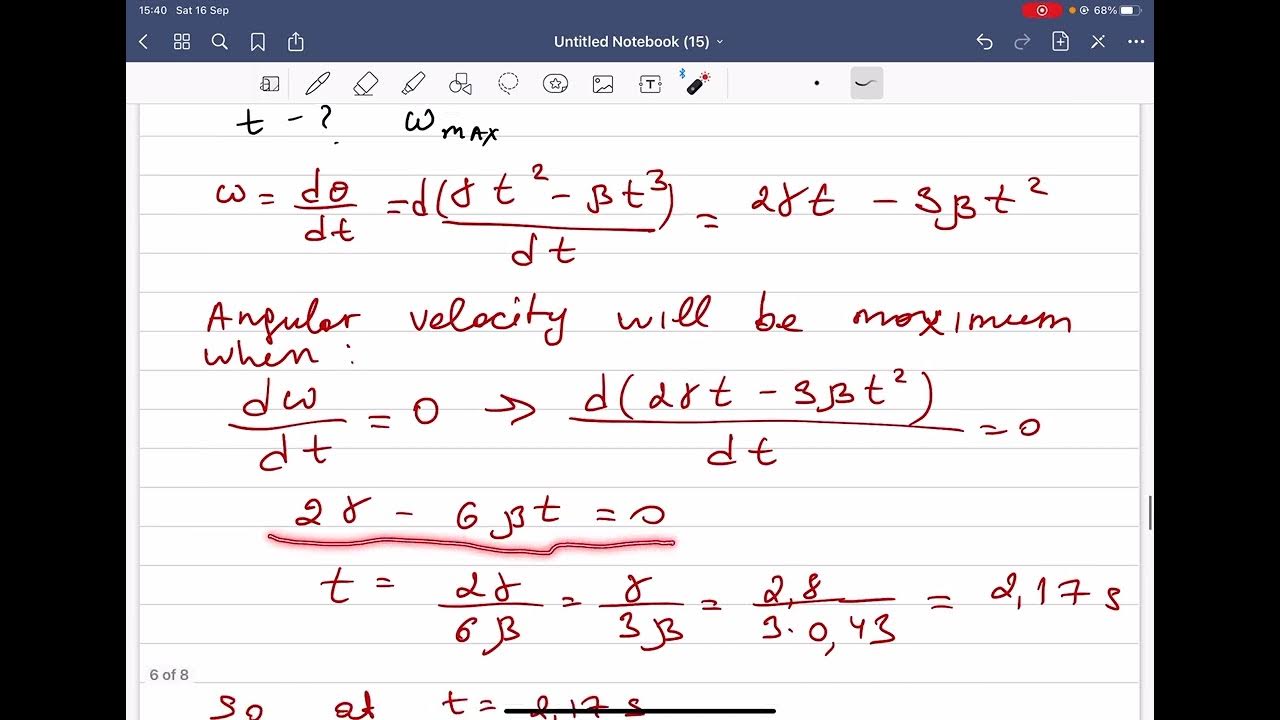 15:40 Sat 16 Sep 68%
Untitled Notebook (15)
t - ? ω MAX
ω = dθ/dt = d(γt² - βt³)/dt = 2γt - 3βt²
Angular velocity will be maximum
when :
dω/dt = 0 → d(2γt - 3βt²)/dt = 0
2γ - 6βt = 0
t = 2γ/6β = γ/3β = 2,8/3·0,43 = 2,17 s
6 of 8
So at t = 2,17 s